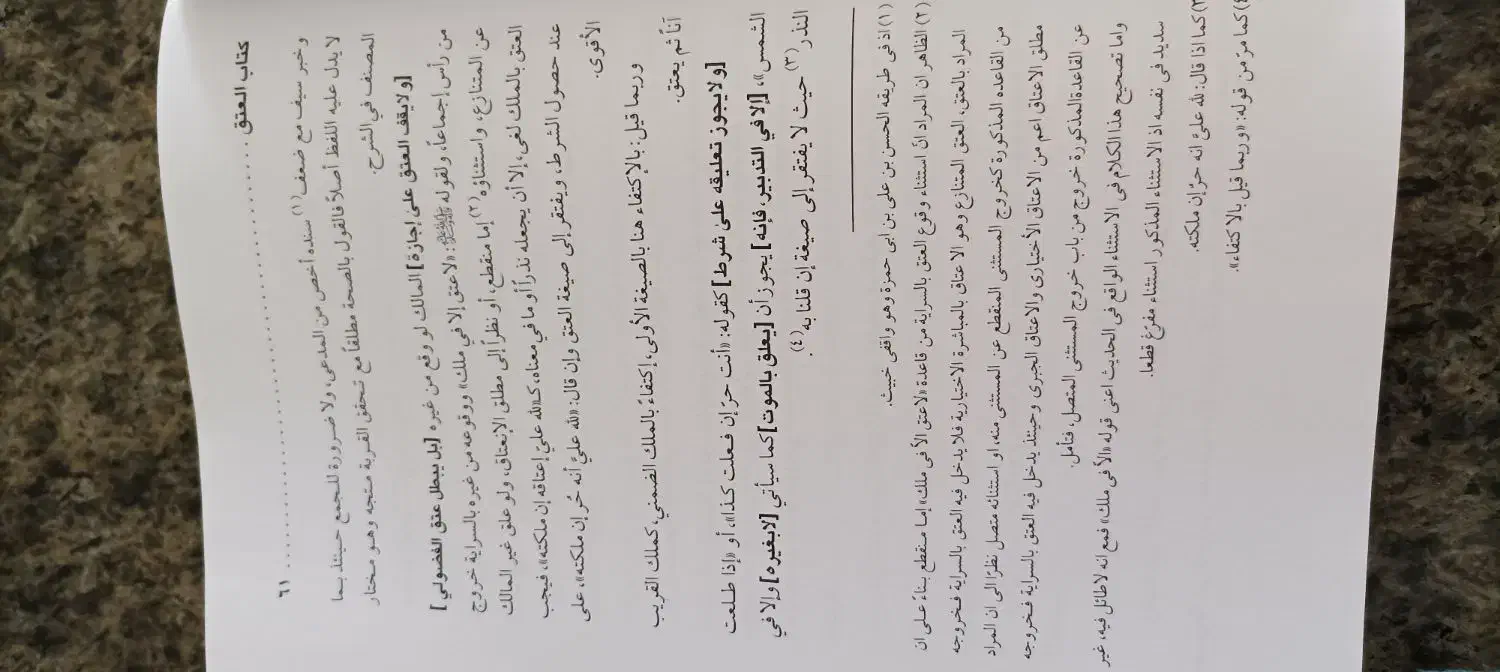 كتاب العتق ........................................ ٦١
وخبر سيف مع ضعف(١) سنده أخص من المدعى، ولا ضرورة للجمع حينئذ بما
لا يدل عليه اللفظ أصلاً فالقول بالصحة مطلقاً مع تحقق القربة متجه وهو مختار
المصنف في الشرح.
[ولايقف العتق على إجازة] المالك لو وقع من غيره [بل يبطل عتق الفضولي]
من رأس إجماعاً، ولقوله ﷺ: «لاعتق إلا في ملك» ووقوعه من غيره بالسراية خروج
عن المتنازع، واستثناؤه(٢) إما منقطع، أو نظراً الى مطلق الإنعتاق، ولو علق غير المالك
العتق بالملك لغى، إلا أن يجعله نذراً أو ما في معناه، كـ«لله عليّ إعتاقه إن ملكته»، فيجب
عند حصول الشرط، ويفتقر إلى صيغة العتق وإن قال: «لله عليَّ أنه حُر إن ملكته»، على
الأقوى.
وربما قيل: بالإكتفاء هنا بالصيغة الأولى، إكتفاءً بالملك الضمني، كملك القريب
آناً ثم يعتق.
[ولا يجوز تعليقه على شرط] كقوله: «أنت حرّ إن فعلت كذا»، أو «إذا طلعت
الشمس»، [إلا في التدبير، فإنه] يجوز أن [يعلق بالموت] كما سيأتي [لابغيره] وإلا في
النذر(٣) حيث لا يفتقر إلى صيغة إن قلنا به(٤).
(١) اذ في طريقه الحسن بن على بن ابى حمزة وهو واقفى خبيث.
(٢) الظاهر ان المراد انّ استثناء وقوع العتق بالسراية من قاعدة «لاعتق الاّ فى ملك» إما منقطع بناءً على ان
المراد بالعتق، العتق المتنازع وهو الاعتاق بالمباشرة الاختيارية فلا يدخل فيه العتق بالسراية فخروجه
من القاعده المذكورة كخروج المستثنى المنقطع عن المستثنى منه، او استثنائه متصل نظرًا الى ان المراد
مطلق الاعتاق اعم من الاعتاق الأختيارى والاعتاق الجبرى وحينئذ يدخل فيه العتق بالسراية فخروجه
عن القاعدة المذكورة خروج من باب خروج المستثنى المتصل، فتأمل.
واما تصحيح هذا الكلام فى الاستثناء الواقع فى الحديث اعنى قوله «الاّ فى ملك» فمع انه لاطائل فيه، غير
سديد فى نفسه اذ الاستثناء المذكور استثناء مفرّغ قطعا.
٣) كما اذا قال: لله علىَّ انه حرّ إن ملكته.
٤) كما مرّ من قوله: «وربما قيل بالاكتفاء».